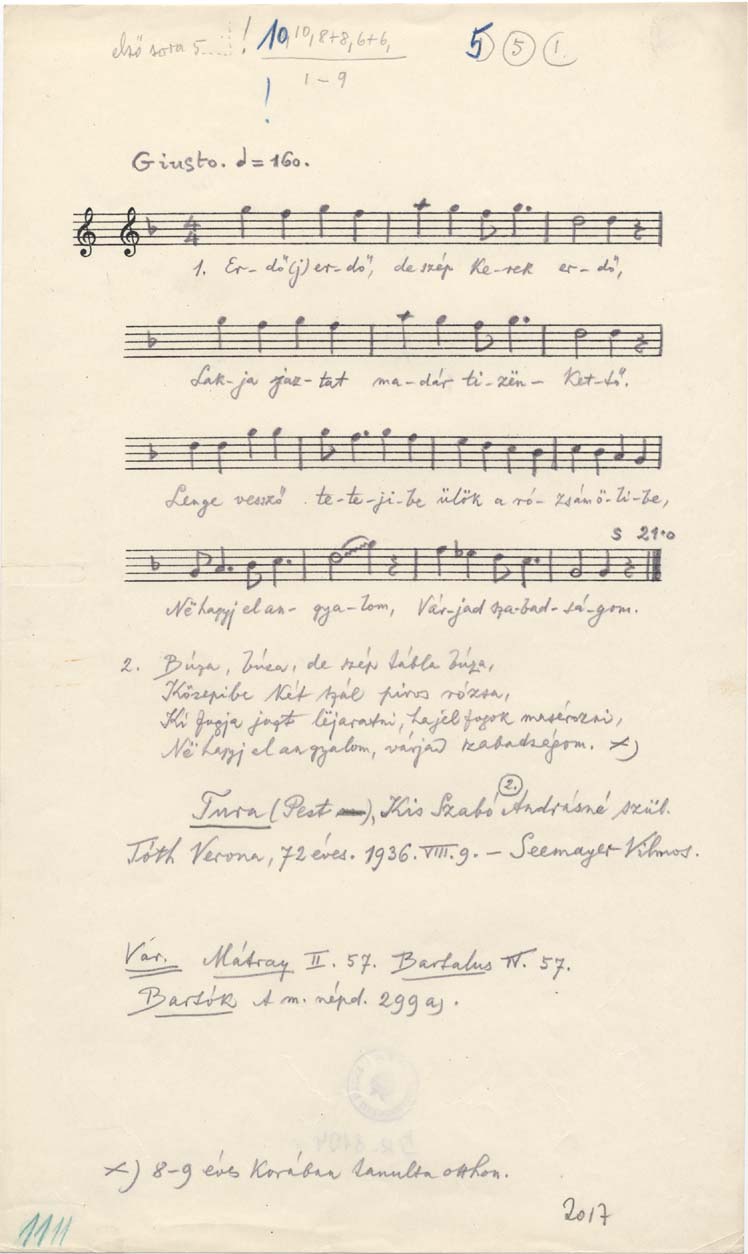 első sora 5 ! 10, 10, 8+8, 6+6, 5 5 1.
1 – 9
!
Giusto. d = 160.
4 4
1. Er-dő(j) er-dő, de szép ke-rek er-dő,
Lak-ja jaz-tat ma-dár ti-zën-ket-tő.
Lenge vessző te-te-ji-be ülök a ró-zsám ö-li-be,
S 21.0
Në hagyj el an-gya-lom, Vár-jad sza-bad-sá-gom.
2. Búza, búza, de szép tábla búza,
Közepibe két szál piros rózsa,
Ki fogja jazt lëjaratni, hajél fogok masérozni,
Në hagyj el angyalom, várjad szabadségom. x)
2.
Tura (Pest), Kis Szabó Andrásné szül.
Tóth Verona, 72 éves. 1936. VIII. 9. – Seemayer Vilmos.
Vár. Mátray II. 57. Bartalus IV. 57.
Bartók A m. népd. 299 a).
x) 8-9 éves korában tanulta otthon.
1111
2017